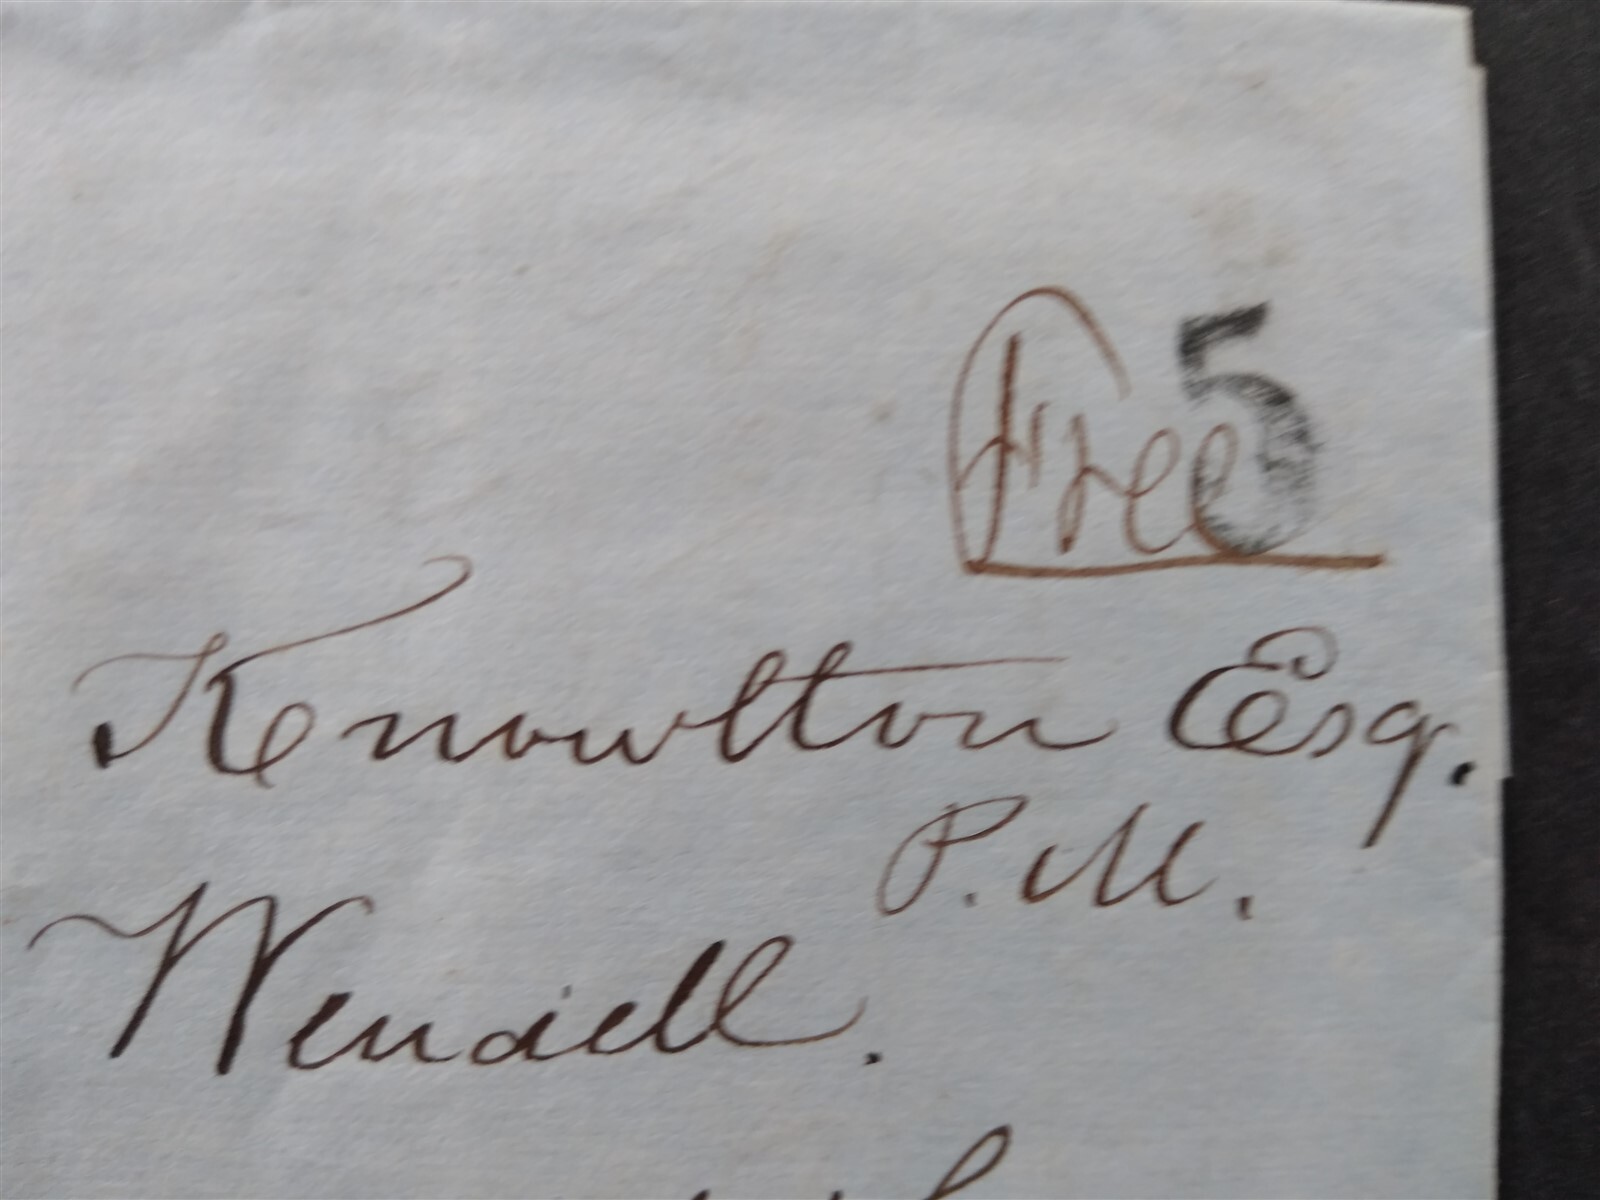 Free 5
Knowlton Esq.
P.M.
Wendell.